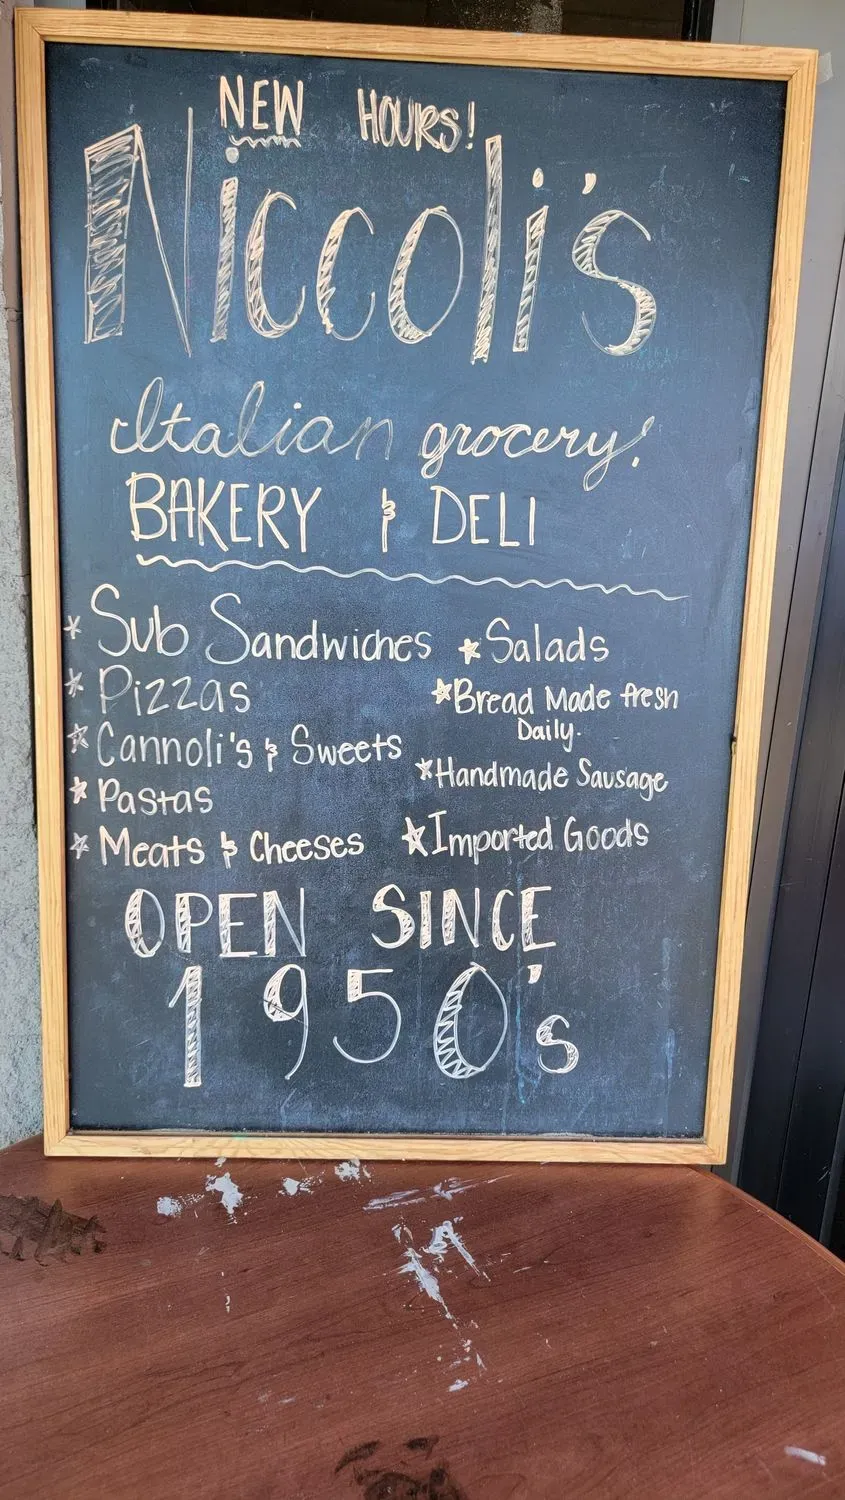 NEW HOURS!
Niccoli's
Italian grocery!
BAKERY & DELI
* Sub Sandwiches
* Pizzas
* Cannoli's & Sweets
* Pastas
* Meats & Cheeses
* Salads
* Bread Made fresh
Daily.
* Handmade Sausage
* Imported Goods
OPEN SINCE
1950's